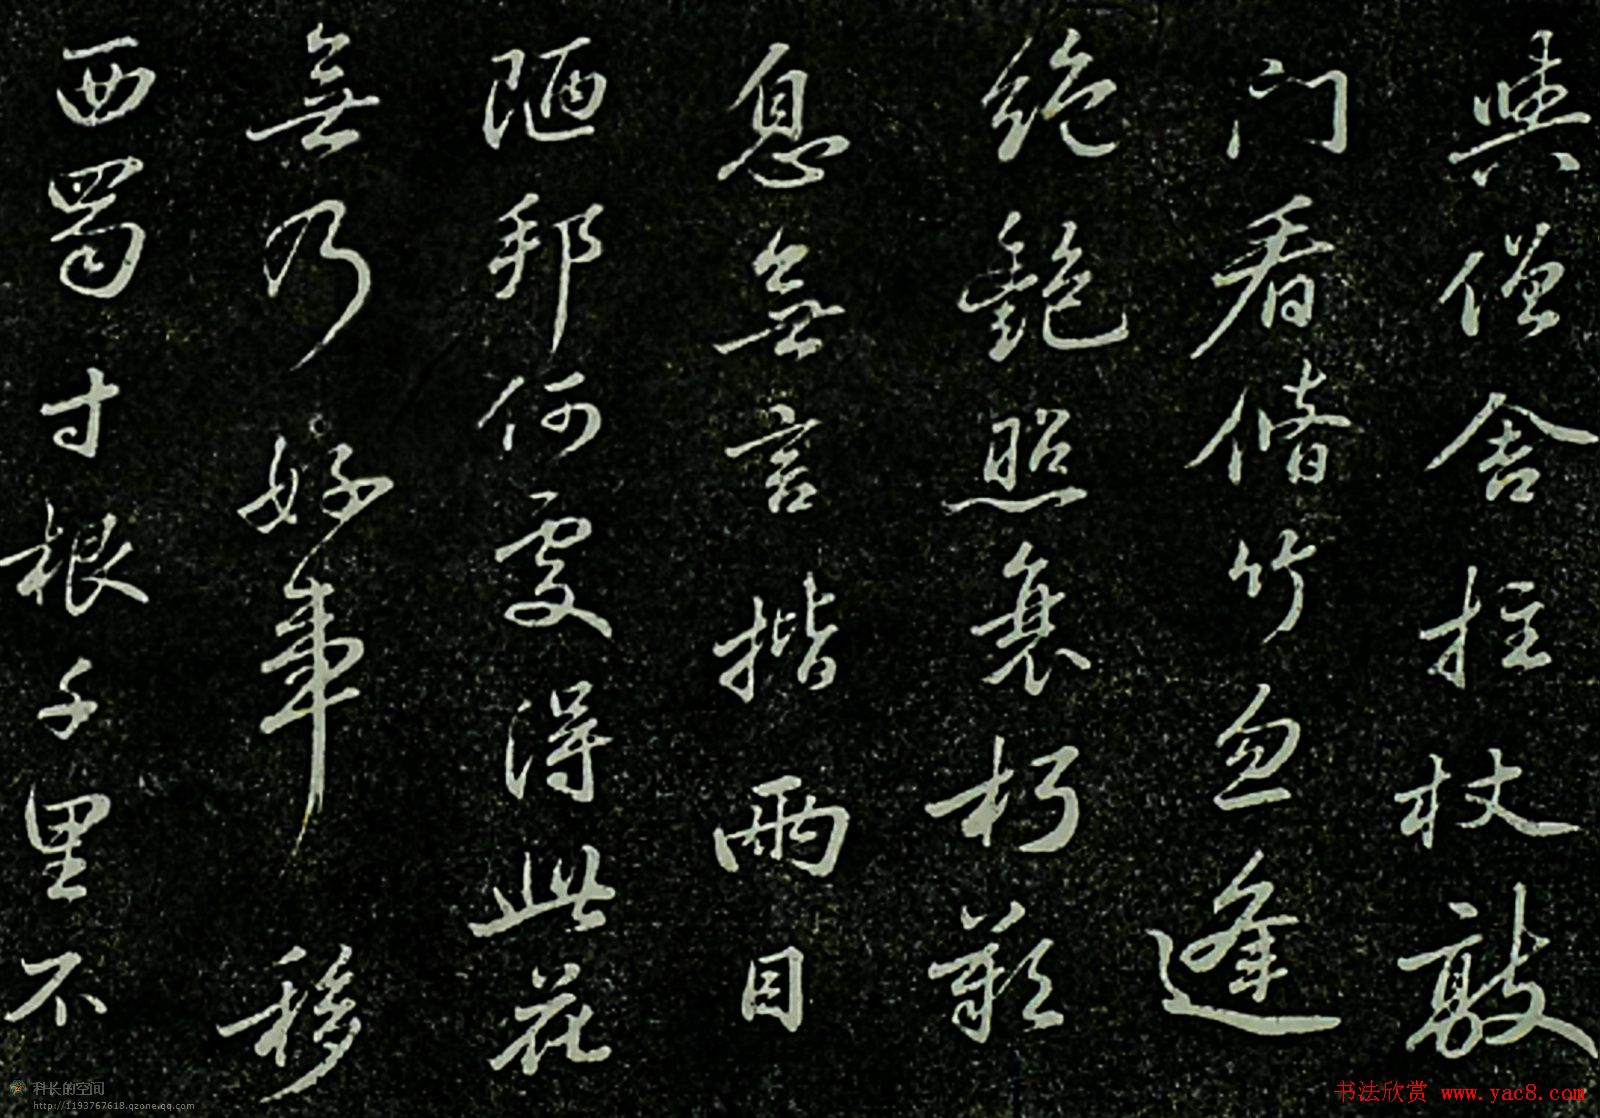 與僧舍拄杖敲
门看脩竹忽逢
絶艶照衰朽歎
息無言揩兩目
陋邦何處得此花
無乃好事移
西蜀寸根千里不
科长的空间
http://1193767618.qzone.qq.com
书法欣赏 www.yac8.com